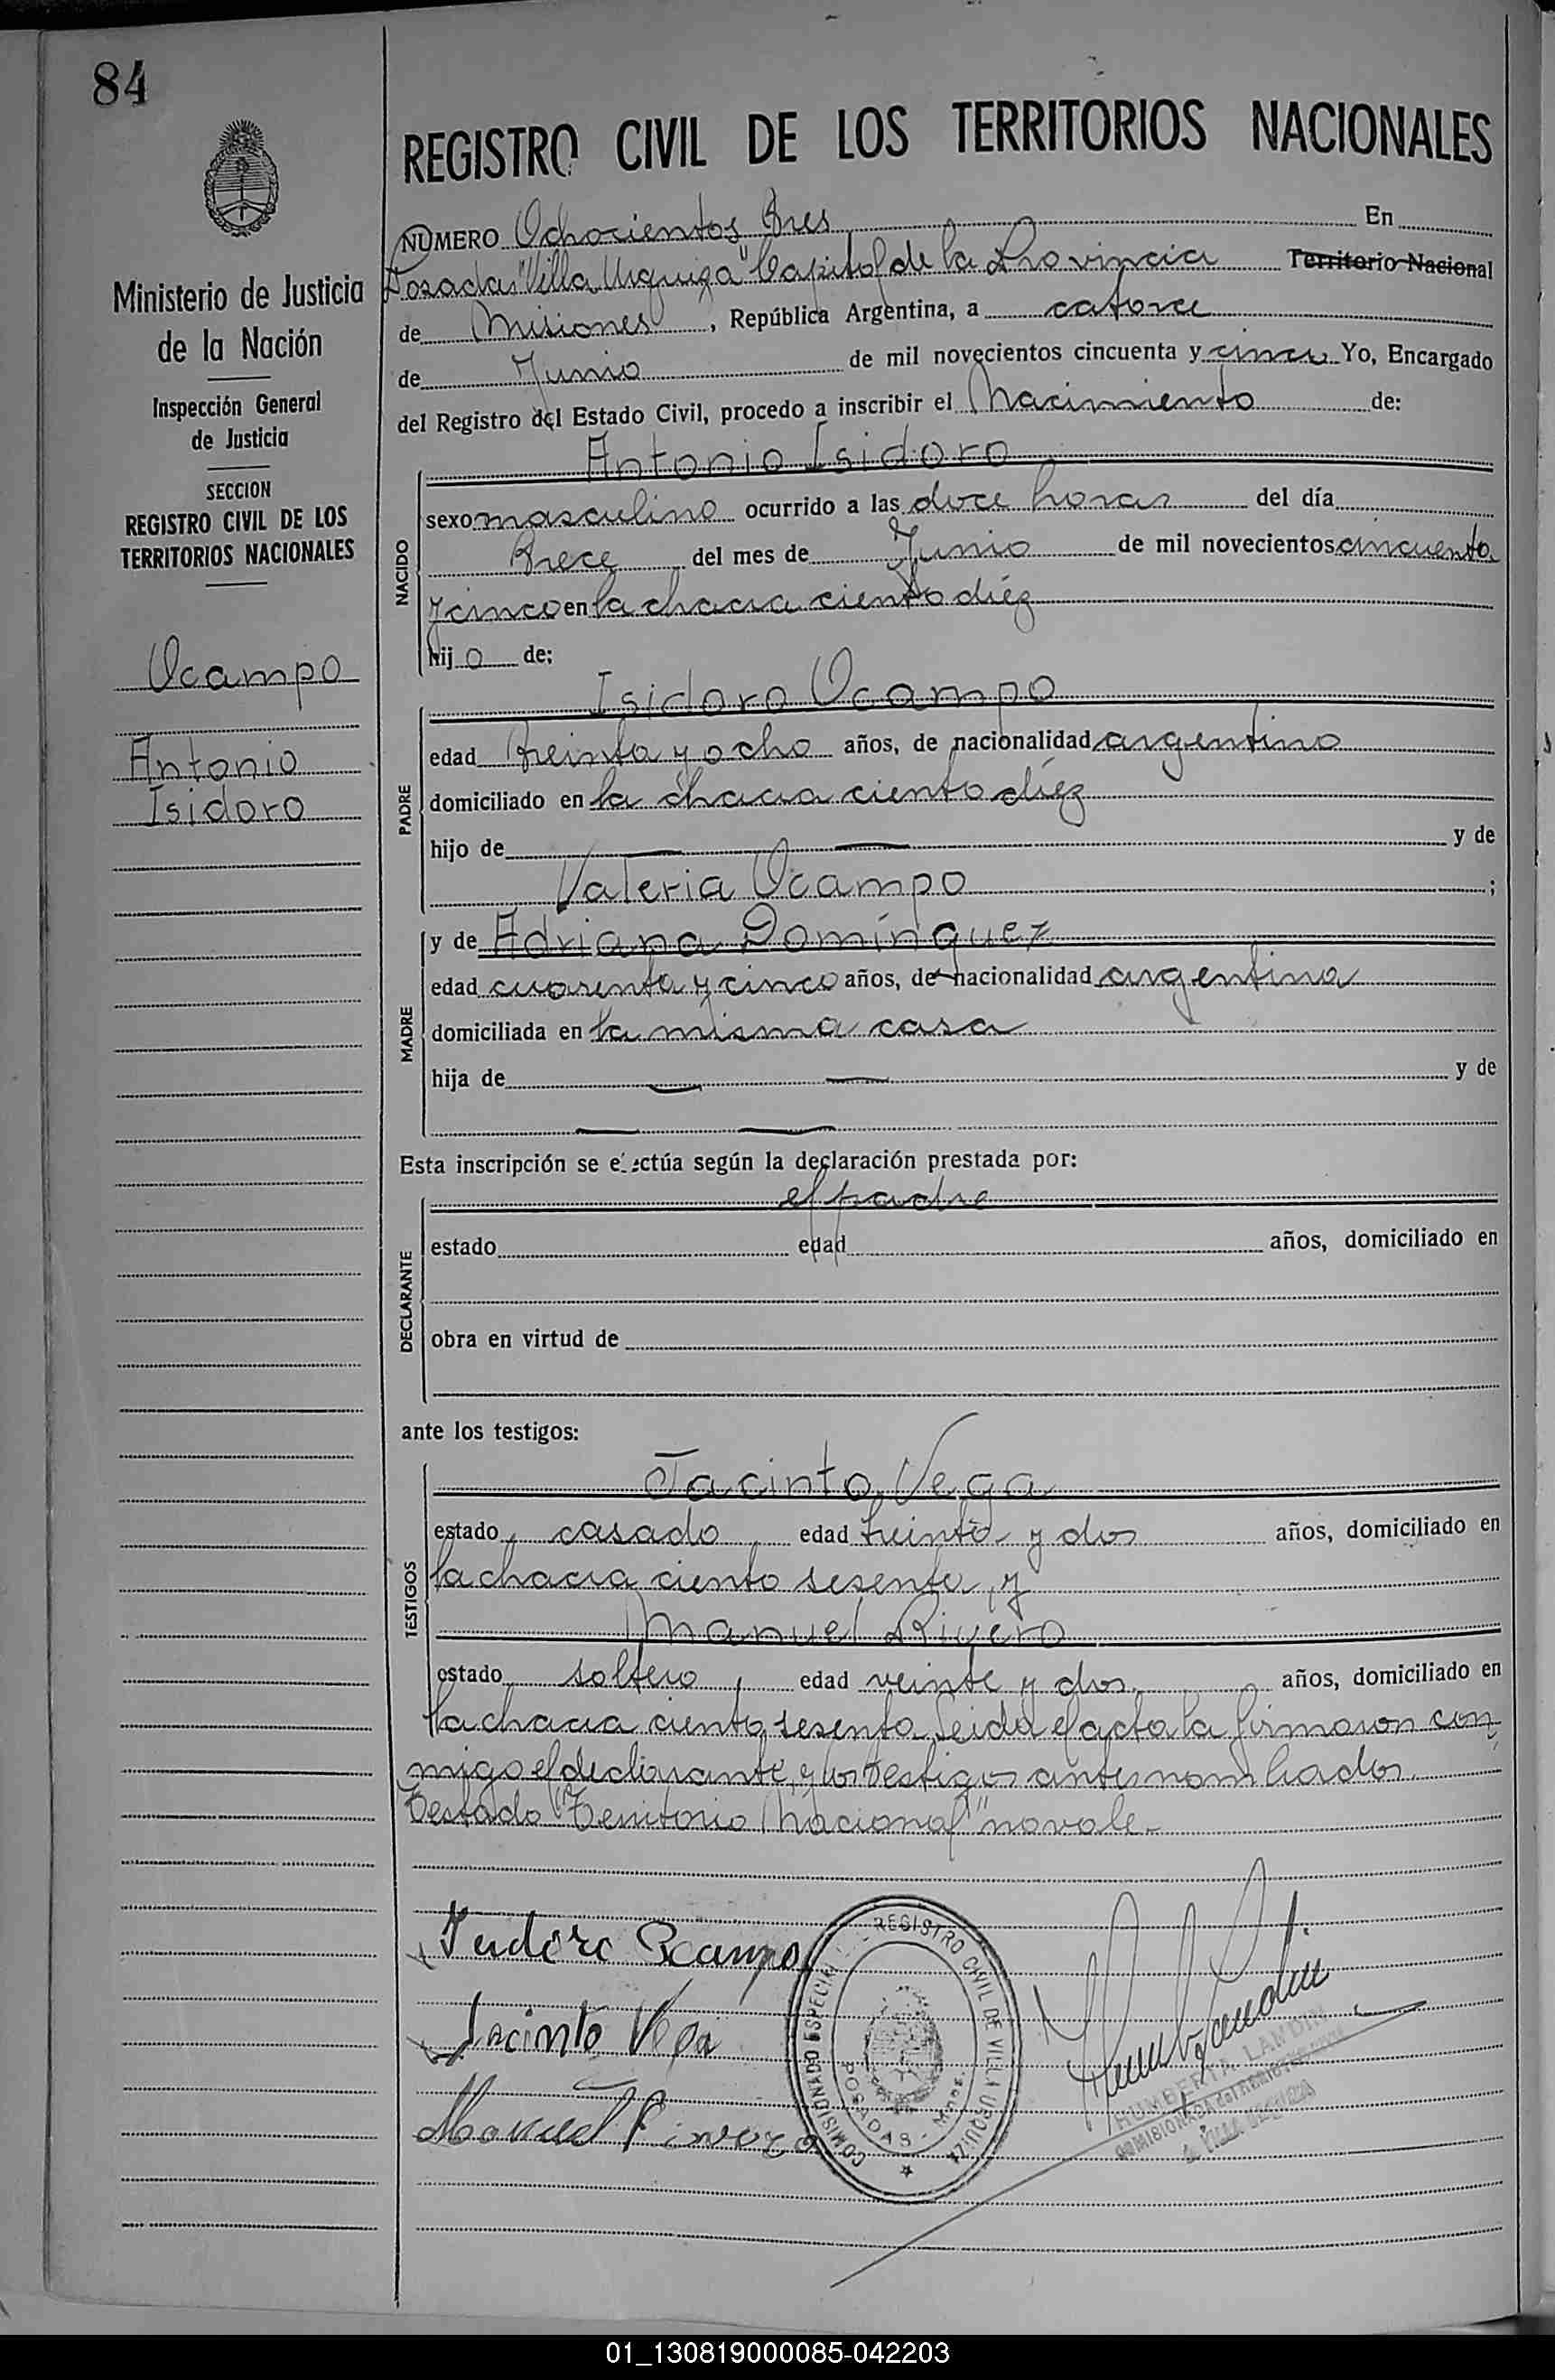 84
REGISTRO CIVIL DE LOS TERRITORIOS NACIONALES
Ministerio de Justicia
de la Nación
Inspección General
de Justicia
SECCION
REGISTRO CIVIL DE LOS
TERRITORIOS NACIONALES
Ocampo
Antonio
Isidoro
NUMERO Ochocientos Tres En
Posadas "Villa Urquiza" Capital de la Provincia Territorio Nacional
de Misiones, República Argentina, a catorce
de Junio de mil novecientos cincuenta y cinco Yo, Encargado
del Registro del Estado Civil, procedo a inscribir el Nacimiento de:
NACIDO
Antonio Isidoro
sexo masculino ocurrido a las doce horas del día
Trece del mes de Junio de mil novecientos cincuenta
y cinco en la chacra ciento diéz
hijo de:
PADRE
Isidoro Ocampo
edad Treinta y ocho años, de nacionalidad argentino
domiciliado en la chacra ciento diéz
hijo de — — y de
Valeria Ocampo ;
MADRE
y de Adriana Domínguez
edad cuarenta y cinco años, de nacionalidad argentina
domiciliada en la misma casa
hija de — — y de
— —
Esta inscripción se efectúa según la declaración prestada por:
DECLARANTE
el padre
estado edad años, domiciliado en
obra en virtud de
ante los testigos:
TESTIGOS
Jacinto Vega
estado, casado, edad treinta y dos años, domiciliado en
la chacra ciento sesenta, y
Manuel Rivero
estado soltero, edad veinte y dos, años, domiciliado en
la chacra ciento sesenta, Leida el acta la firmaron con
migo el declarante, y los Testigos antes nombrados.
Testado "Territorio Nacional" no vale.-
Isidoro Ocampo
Jacinto Vega
Manuel Rivero
REGISTRO CIVIL DE VILLA URQUIZA
COMISIONADO ESPECIAL
POSADAS - Mnes.
HUMBERTA LANDINI
COMISIONADA del
VILLA URQUIZA
01_130819000085-042203